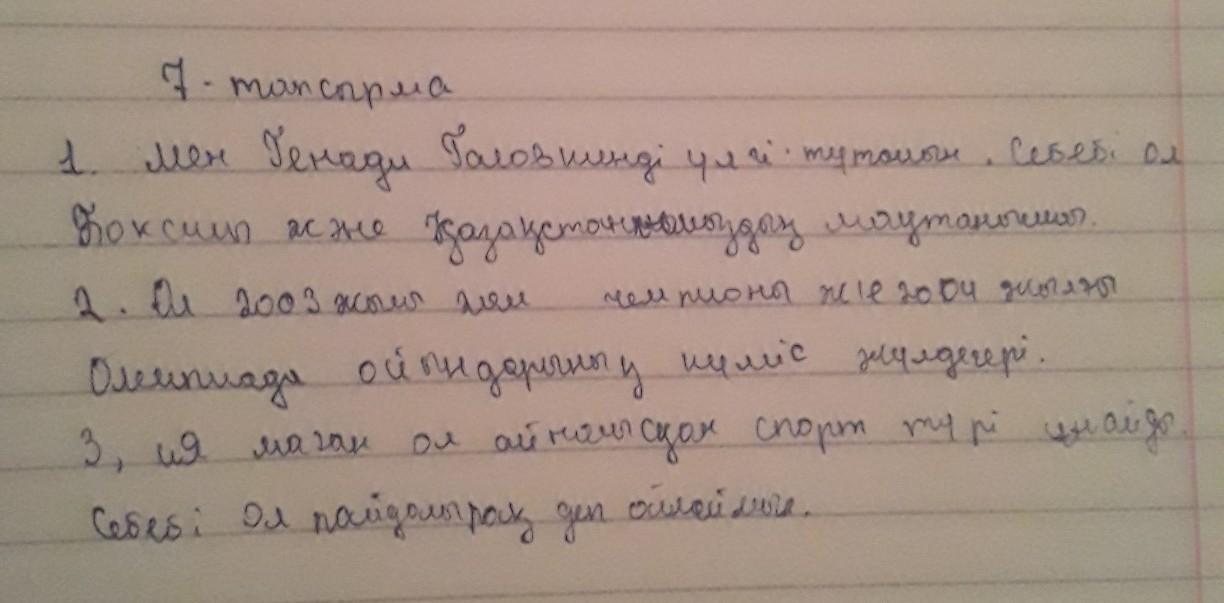 7-тапсырма
1. Мен Генади Головкинді үлгі тұтамын. Себебі ол
боксшы және Қазақстанымыздың мақтанышы.
2. Ол 2003 жылы әлем чемпионы және 2004 жылғы
Олемпиада ойындарының күміс жүлдегері.
3, ия маған ол айналысқан спорт түрі ұнайды.
Себебі ол пайдалырақ деп ойлаймын.